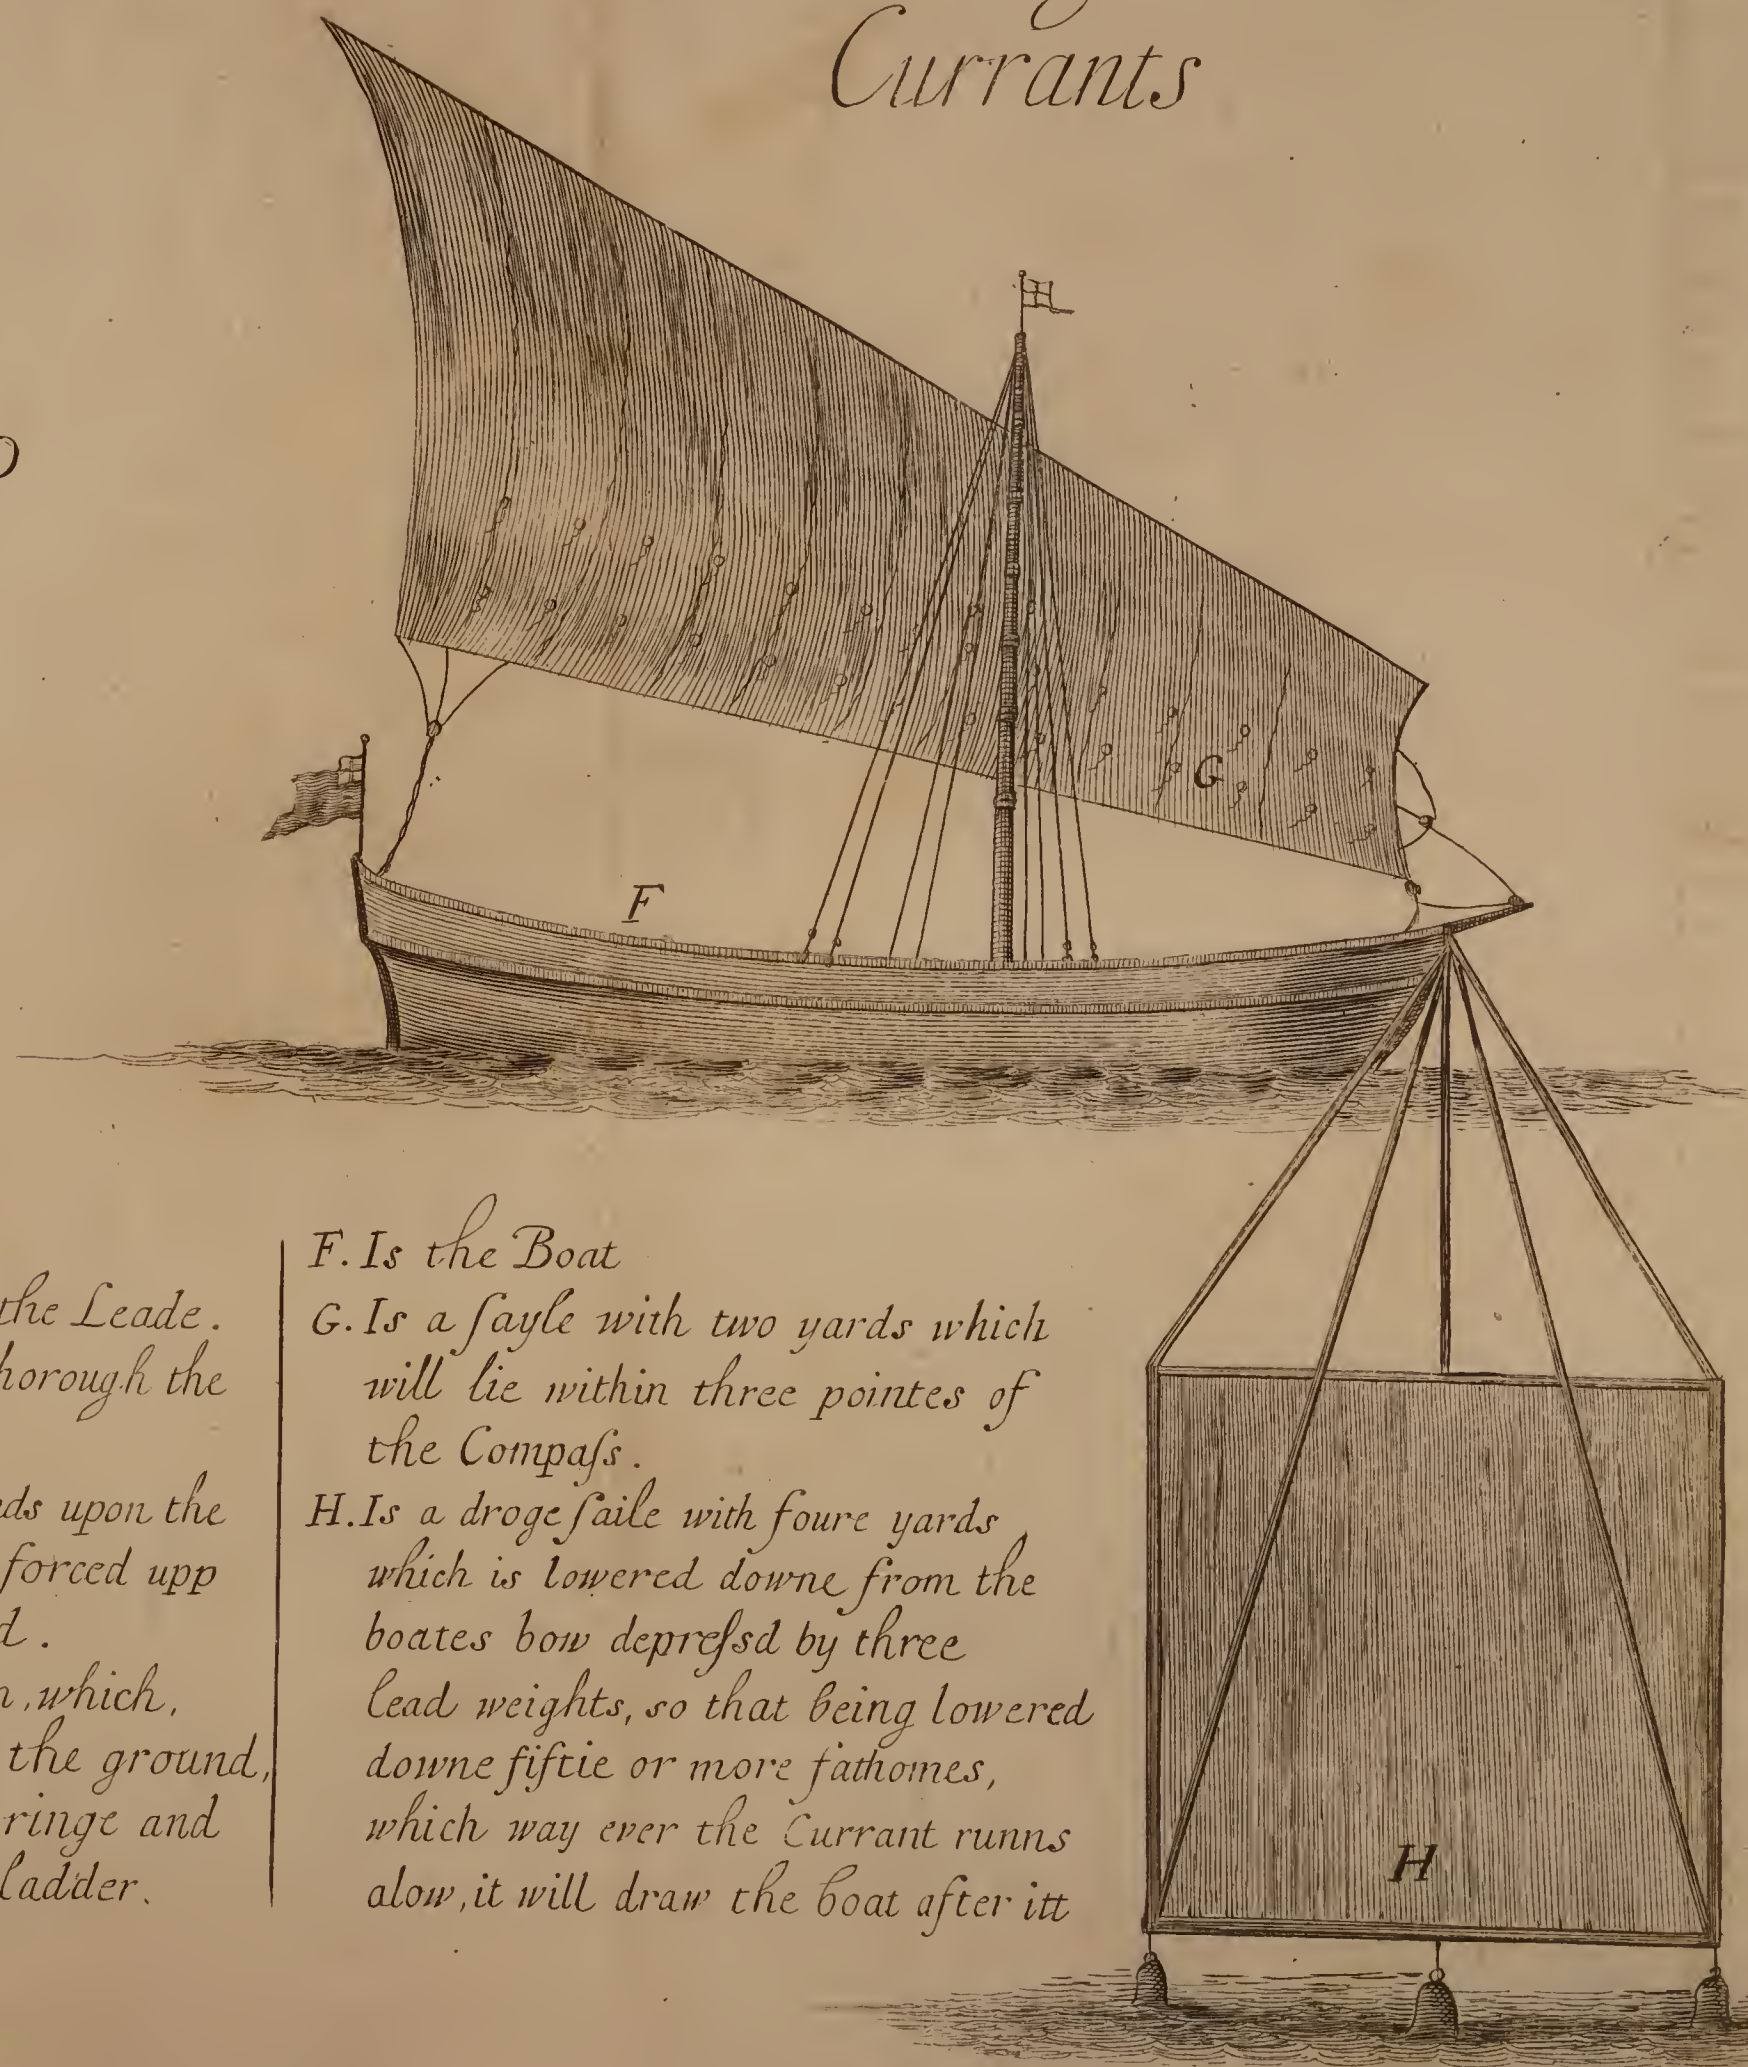 Currants
F
G
the Leade.
horough the
ds upon the
forced upp
d.
n, which,
the ground,
ringe and
ladder.
F. Is the Boat
G. Is a ſayle with two yards which
will lie within three pointes of
the Compaſs.
H. Is a droge ſaile with foure yards
which is lowered downe from the
boates bow depreſsd by three
lead weights, so that being lowered
downe fiftie or more fathomes,
which way ever the Currant runns
alow, it will draw the boat after itt
H